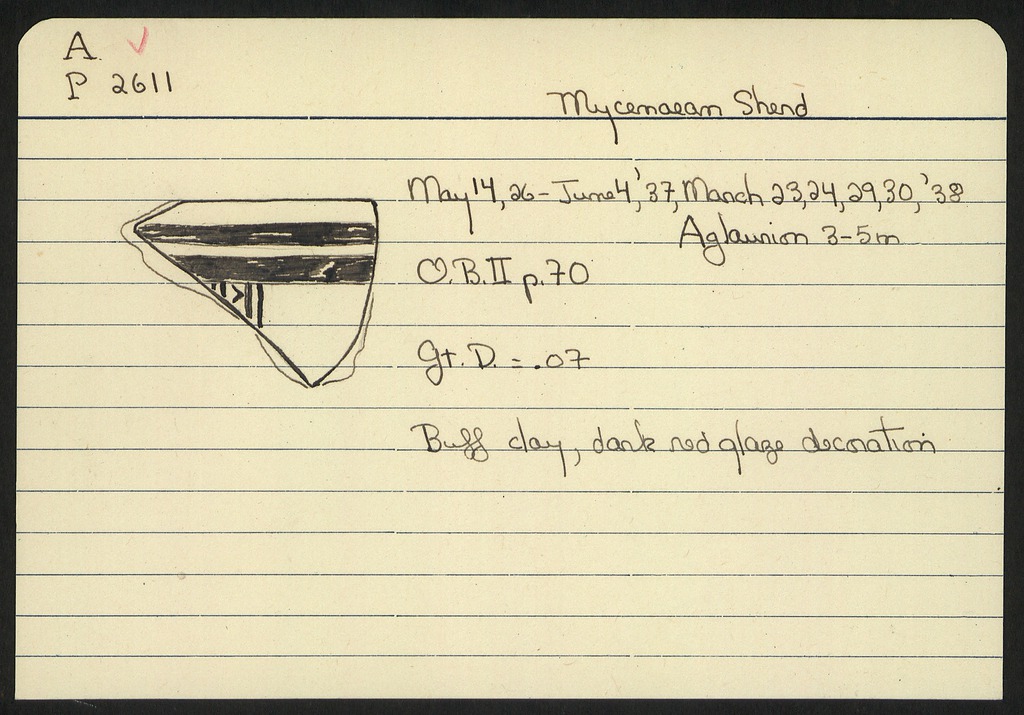 A
P 2611
Mycenaean Sherd
May 14, 26 - June 4, '37, March 23, 24, 29, 30, '38
Aglaurion 3-5m
O.B. II p. 70
Gt. D. = .07
Buff clay, dark red glaze decoration